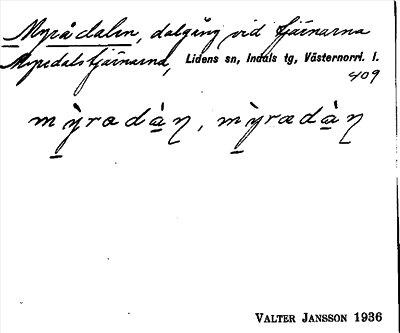 Myrådalen, dalgång vid tjärnarna
Myredalstjärnarna, Lidens sn, Indals tg, Västernorrl. l.
409
mỳrædàɳ, mỳrædàɳ
VALTER JANSSON 1936